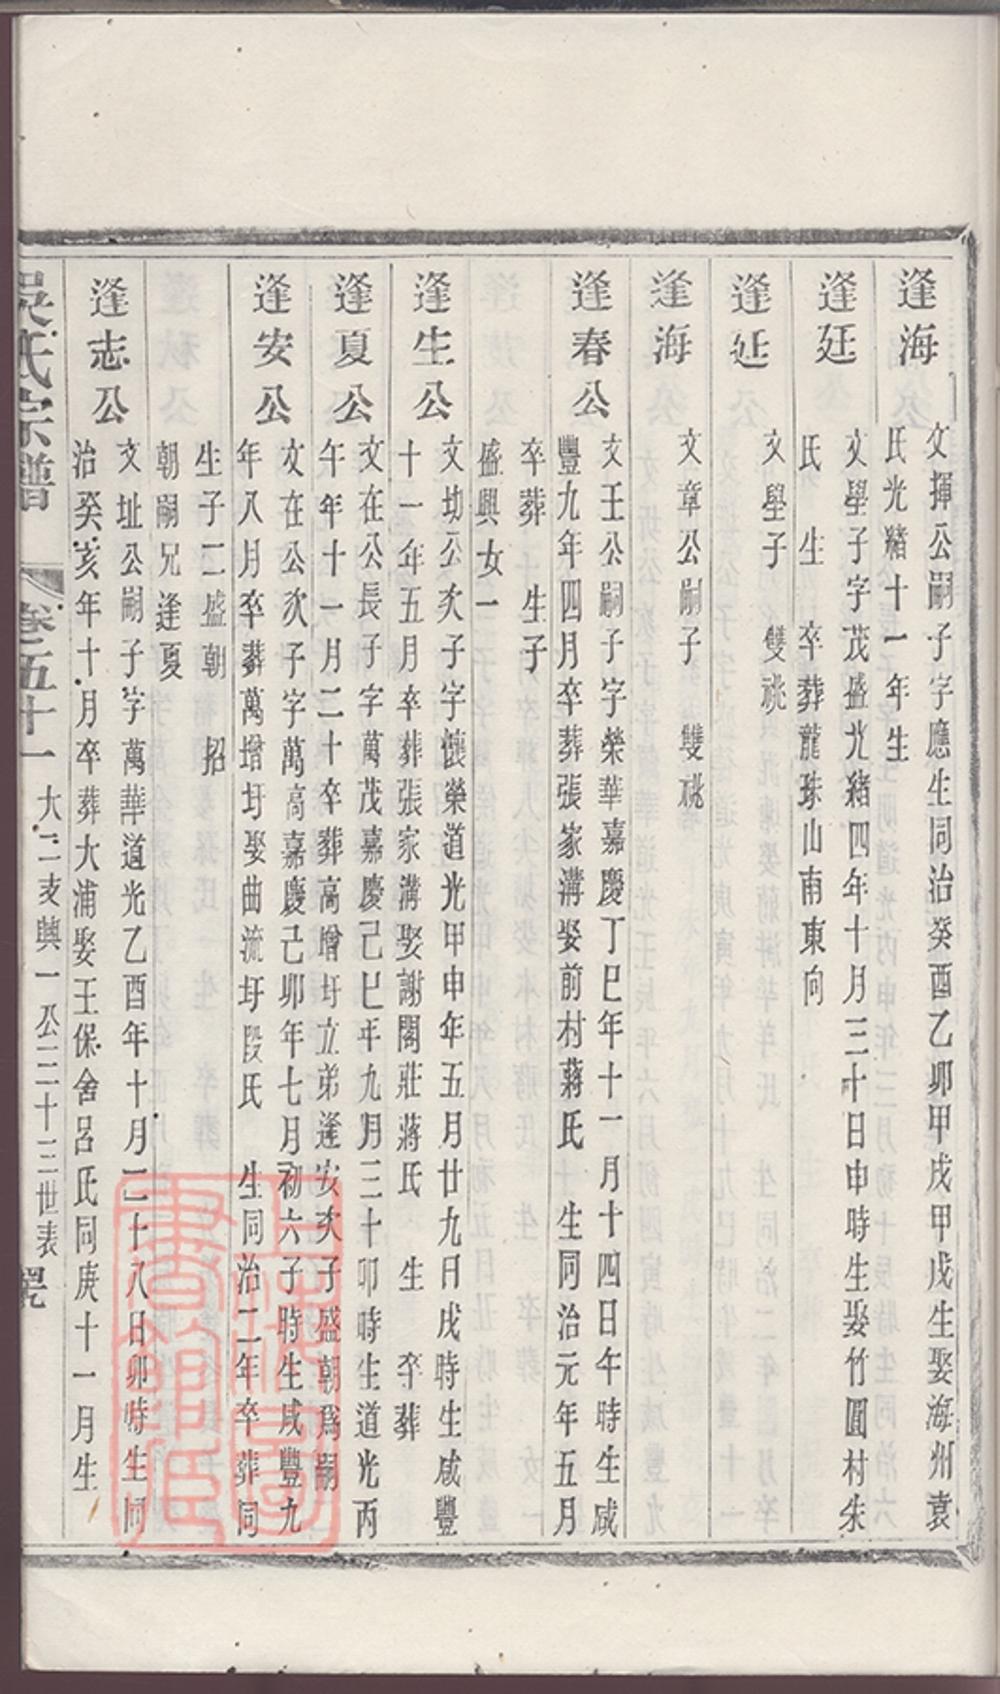 逢海
文揮公嗣子字應生同治癸酉乙卯甲戌甲戌生娶海州袁
氏光緒十一年生
逢廷
文學子字茂盛光緒四年十月三十日申時生娶竹園村朱
氏 生 卒葬龍珠山南東向
逢延
文學子 雙祧
逢海
文章公嗣子 雙祧
逢春公
文王公嗣子字榮華嘉慶丁巳年十一月十四日午時生咸
豐九年四月卒葬張家溝娶前村蔣氏 生同治元年五月
卒葬 生子
盛興女一
逢生公
文切公次子字懷榮道光甲申年五月廿九日戌時生咸豐
十一年五月卒葬張家溝娶謝閣莊蔣氏 生 卒葬
逢夏公
文在公長子字萬茂嘉慶己巳年九月三十卯時生道光丙
午年十一月二十卒葬高增圩立弟逢安次子盛朝爲嗣
逢安公
文在公次子字萬高嘉慶己卯年七月初六子時生咸豐九
年八月卒葬萬增圩娶曲流圩段氏 生同治二年卒葬同
生子二盛朝 招
朝嗣兄逢夏
逢志公
文址公嗣子字萬華道光乙酉年十月二十八日卯時生同
治癸亥年十月卒葬大浦娶王保舍呂氏同庚十一月生
吳氏宗譜 卷五十一 大二支興一公三十三世表